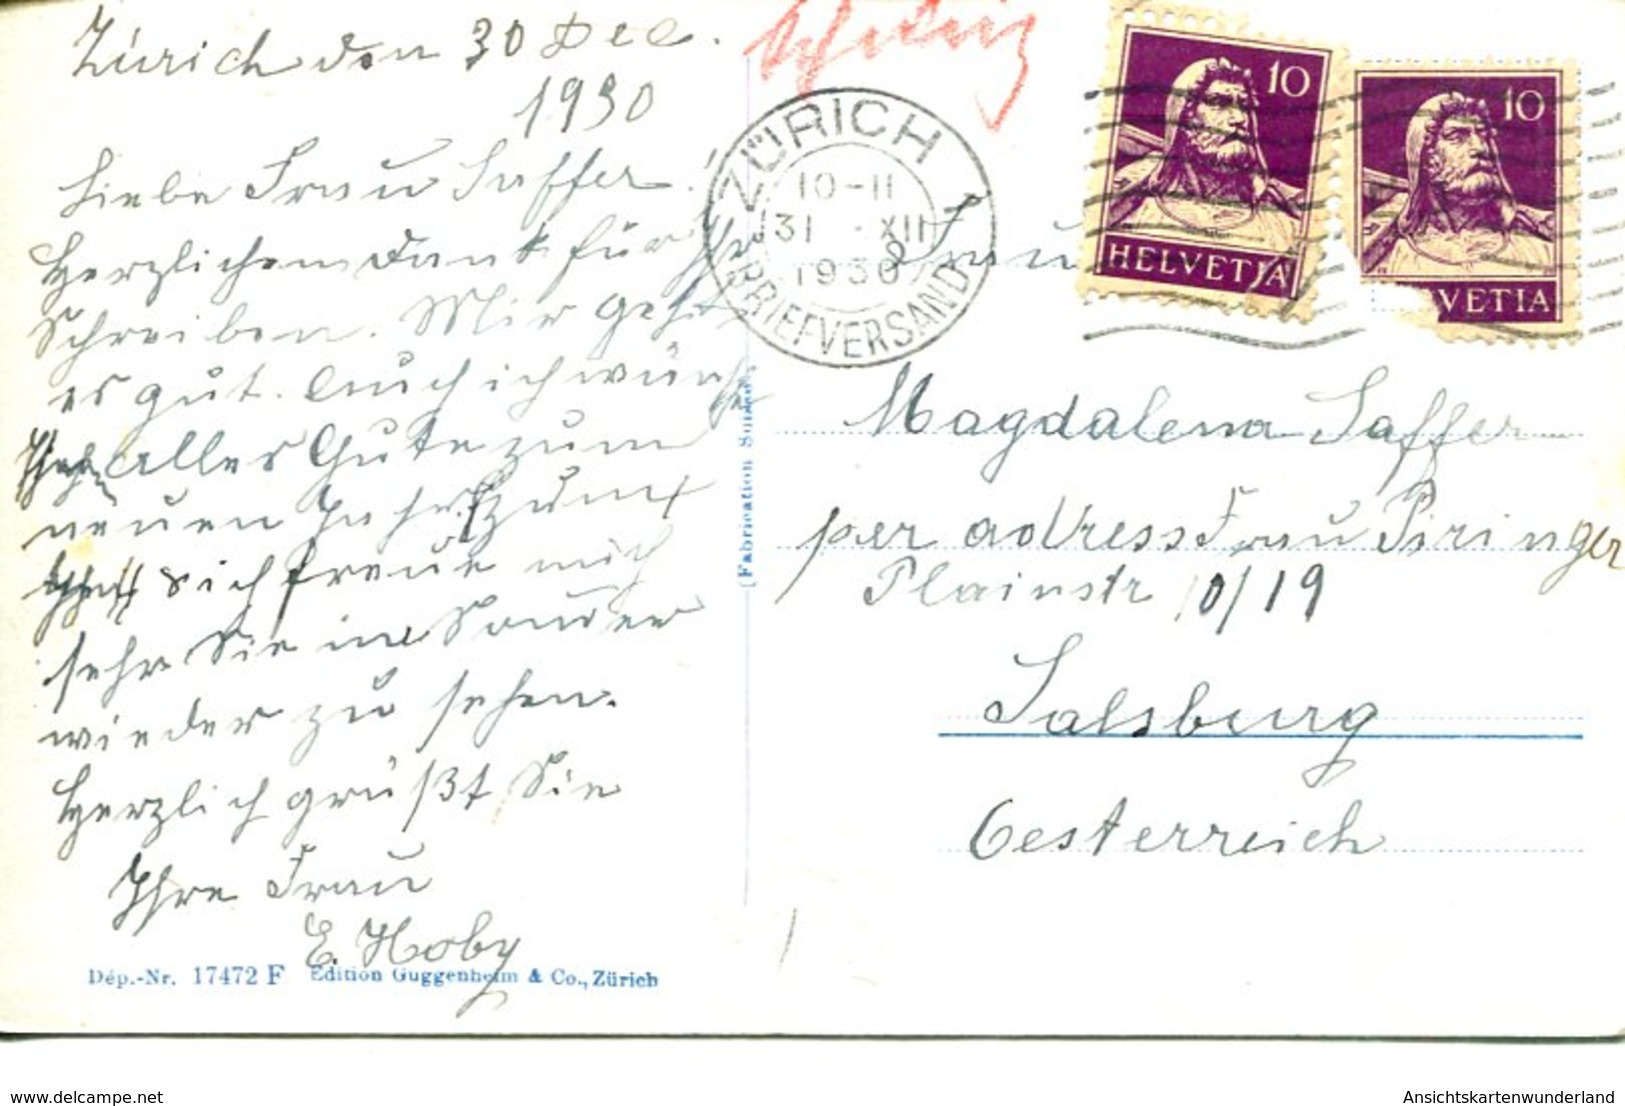 Zürich den 30 Dec.
1930
Liebe Frau Saffer!
Herzlichen Dank für Ihr
Schreiben. Mir geht
es gut. Auch ich wünsche
Ihnen alles Gute zum
neuen Jahr, zum
sich freue mich
sehr Sie im Sommer
wieder zu sehen.
Herzlich grüßt Sie
Ihre Frau
E. Hoby
Dép.-Nr. 17472 F Edition Guggenheim & Co., Zürich
(Fabrication Suisse)
ZÜRICH 1
10-11
31 XII
1930
BRIEFVERSAND
10
HELVETIA
10
HELVETIA
Frau
Magdalena Saffer
per adress Frau Piringer
Plainstr 10/19
Salsburg
Oesterreich
www.delcampe.net
Ansichtskartenwunderland